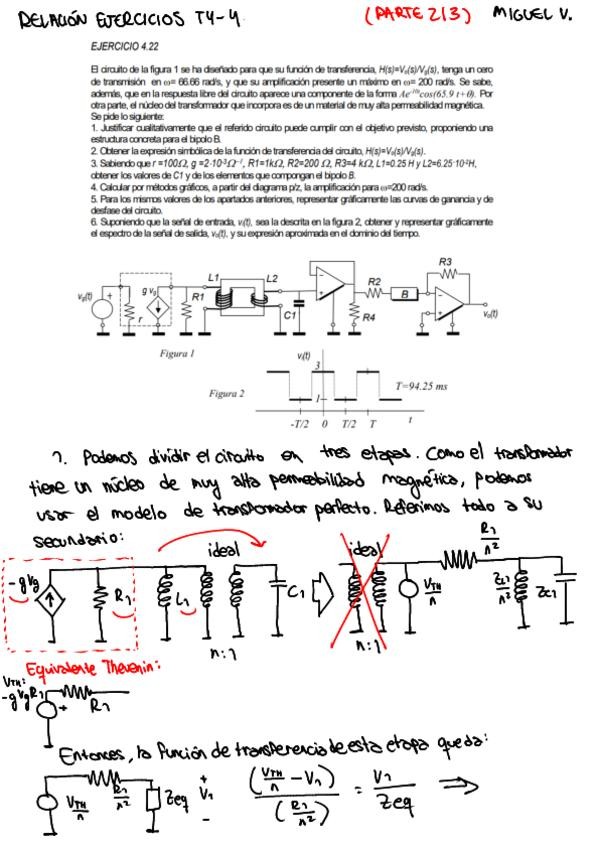 RELACIÓN EJERCICIOS T4-4 (PARTE 2/3) MIGUEL V.
EJERCICIO 4.22
El circuito de la figura 1 se ha diseñado para que su función de transferencia, H(s)=Vo(s)/Vg(s), tenga un cero
de transmisión en ω= 66.66 rad/s, y que su amplificación presente un máximo en ω= 200 rad/s. Se sabe,
además, que en la respuesta libre del circuito aparece una componente de la forma Ae⁻¹⁰ᵗcos(65.9 t+θ). Por
otra parte, el núcleo del transformador que incorpora es de un material de muy alta permeabilidad magnética.
Se pide lo siguiente:
1. Justificar cualitativamente que el referido circuito puede cumplir con el objetivo previsto, proponiendo una
estructura concreta para el bipolo B.
2. Obtener la expresión simbólica de la función de transferencia del circuito, H(s)=Vo(s)/Vg(s).
3. Sabiendo que r =100Ω, g =2·10⁻³Ω⁻¹, R1=1kΩ, R2=200 Ω, R3=4 kΩ, L1=0.25 H y L2=6.25·10⁻²H,
obtener los valores de C1 y de los elementos que compongan el bipolo B.
4. Calcular por métodos gráficos, a partir del diagrama p/z, la amplificación para ω=200 rad/s.
5. Para los mismos valores de los apartados anteriores, representar gráficamente las curvas de ganancia y de
desfase del circuito.
6. Suponiendo que la señal de entrada, vi(t), sea la descrita en la figura 2, obtener y representar gráficamente
el espectro de la señal de salida, vo(t), y su expresión aproximada en el dominio del tiempo.
R3
L1 L2 R2
vg(t) + g vg R1 - + B - +
r C1 R4 vo(t)
Figura 1
vi(t)
3
T=94.25 ms
Figura 2
1
-T/2 0 T/2 T t
1. Podemos dividir el circuito en tres etapas. Como el transformador
tiene un núcleo de muy alta permeabilidad magnética, podemos
usar el modelo de transformador perfecto. Referimos todo a su
secundario:
ideal ideal R1/n²
-gVg R1 L1 C1 VTH/n ZL1/n² ZC1
n:1 n:1
Equivalente Thevenin:
VTH:
-gVgR1 + R1
Entonces, la función de transferencia de esta etapa queda:
VTH/n R1/n² Zeq + V1 - (VTH/n - V1)/(R1/n²) = V1/Zeq ⇒